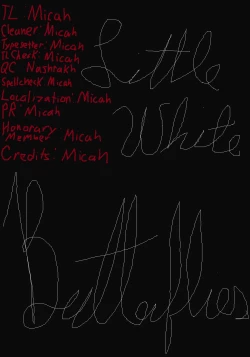 TL Micah
Cleaner: Micah
Typesetter: Micah
TLCheck: Micah
QC Nashrakh
Spellcheck Micah
Localization: Micah
PR: Micah
Honorary
Member Micah
Credits: Micah
Little
White
Butterflies